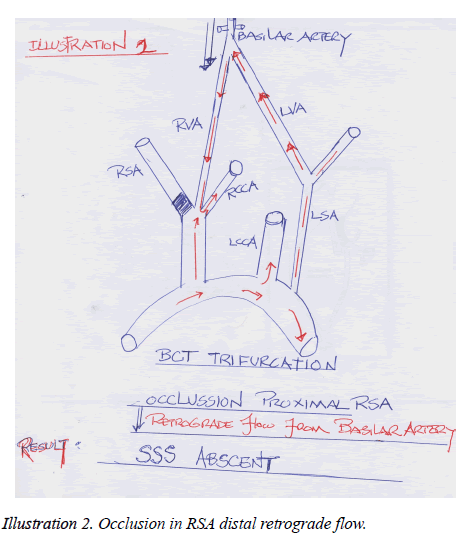 ILLUSTRATION 2
BASILAR ARTERY
RVA
LVA
RSA
RCCA
LCCA
LSA
BCT TRIFURCATION
OCCLUSSION PROXIMAL RSA
RETROGRADE FLOW FROM BASILAR ARTERY
RESULT:
SSS ABSCENT
Illustration 2. Occlusion in RSA distal retrograde flow.